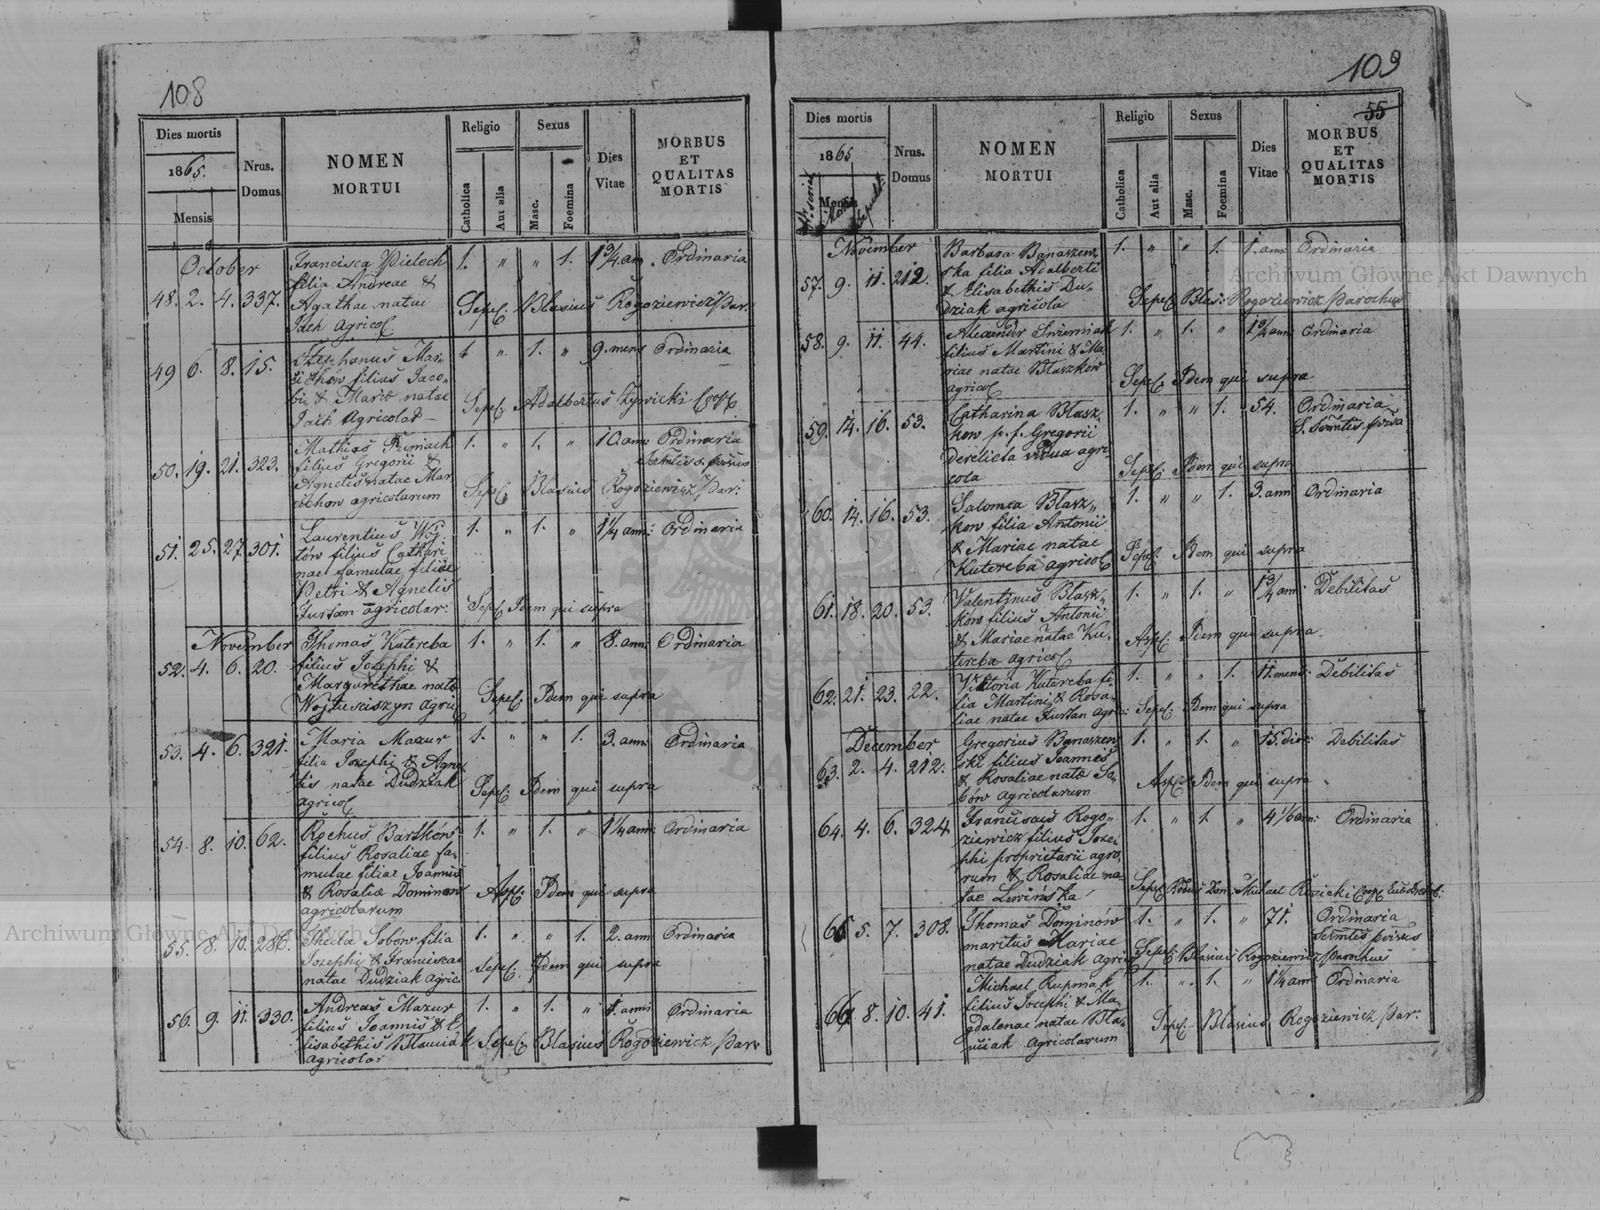 108
Dies mortis
1865.
Mensis
Nrus.
Domus
NOMEN
MORTUI
Religio
Catholica
Aut alia
Sexus
Masc.
Foemina
Dies
Vitae
MORBUS
ET
QUALITAS
MORTIS
October
48. 2. 4. 337.
Francisca Pielech
filia Andreae &
Agathae natae
Jach Agricol
1. " " 1. 1 3/4 an. Ordinaria
Sepel: Blasius Rogoziewicz Par:
49 6. 8. 15.
Stephanus Mar-
filius Jaco-
bi & Mariae natae
Jach Agricolar
1 " 1. " 9. mens Ordinaria
Sepel: Adalbertus Zywicki Coop
50. 19. 21. 323.
Mathias
filius Gregorii &
Agnetis natae Mar
cichow agricolarum
1. " 1. " 10. ann Ordinaria
Sepel: Blasius Rogoziewicz Par:
51. 25. 27. 301.
Laurentius Woj-
tów filius Cathari
nae famulae filiae
Petri & Agnetis
Furtan agricolar:
1. " 1. " 1 1/4 ann: Ordinaria
Sepel: Idem qui supra
November
52. 4. 6. 20.
Thomas Kutereba
filius Josephi &
Margarethae natae
Wojtusciszyn agric
1. " 1. " 8. ann: Ordinaria
Sepel: Idem qui supra
53. 4. 6. 321.
Maria Mazur
filia Josephi & Agne
tis natae Dudziak
agricol
1. " " 1. 3. ann: Ordinaria
Sepel: Idem qui supra
54. 8. 10. 62.
Rochus Bartków
filius Rosaliae fa-
mulae filiae Joannis
& Rosaliae Dominow
agricolarum
1. " 1. " 1 1/4 ann: Ordinaria
Idem qui supra
55. 8. 10. 286.
Thecla Sobow filia
Josephi & Franciscae
natae Dudziak agric:
1. " " 1. 2. ann Ordinaria
Sepel: Idem qui supra
56. 9. 11. 330.
Andreas Mazur
filius Joannis & E-
lisabethis
Agricolar
1. " 1. " 1. anni Ordinaria
Sepel: Blasius Rogoziewicz Par:
109
55
Dies mortis
1865
Mensis
Nrus.
Domus
NOMEN
MORTUI
Religio
Catholica
Aut alia
Sexus
Masc.
Foemina
Dies
Vitae
MORBUS
ET
QUALITAS
MORTIS
November
57. 9. 11. 212.
Barbara Banaszew
ska filia Adalberti
& Elisabethis Du-
dziak agricola
1. " " 1. 1. ann Ordinaria
Sepel: Blas: Rogoziewicz Parochus
58. 9. 11. 44.
Alexander
filius Martini & Ma
riae natae Błaszków
agricol
1. " 1. " 1 3/4 ann: Ordinaria
Sepel: Idem qui supra
59. 14. 16. 53.
Catharina Błasz
kow p. f. Gregorii
derelicta vidua agri-
cola
1. " " 1. 54. Ordinaria
Sepel: Idem qui supra
60. 14. 16. 53.
Salomea Błasz-
kow filia Antonii
& Mariae natae
Kutereba agricol
1. " " 1. 3. ann Ordinaria
Sepel: Idem qui supra
61. 18. 20. 53.
Valentinus Błasz-
ków filius Antonii
& Mariae natae Ku-
tereba agricol
1. " 1. " 1 3/4 am: Debilitas
Idem qui supra
62. 21. 23. 22.
Viktoria Kutereba fi-
lia Martini & Rosa-
liae natae Furtan agric:
1. " " 1. 11. mens: Debilitas
Sepel: Idem qui supra
December
63. 2. 4. 212.
Gregorius Banaszew
ski filius Joannis
& Rosaliae natae So-
bów agricolarum
1. " 1. " 15. dier: Debilitas
Idem qui supra
64. 4. 6. 324.
Franciscus Rogo-
ziewicz filius Jose-
phi proprietarii agro-
rum & Rosaliae na-
tae Lewińska
1. " 1. " 4 1/6 an: Ordinaria
65 5. 7. 308.
Thomas Dominów
maritus Mariae
natae Dudziak agric
1. " 1. " 71. Ordinaria
Sepel: Blasius Rogoziewicz Parochus
66 8. 10. 41.
Michael Rupniak
filius Josephi & Ma-
gdalenae natae
agricolarum
1. " 1. " 1 1/4 ann Ordinaria
Sepel: Blasius Rogoziewicz Par:
Archiwum Główne Akt Dawnych
Archiwum Główne Akt Dawnych